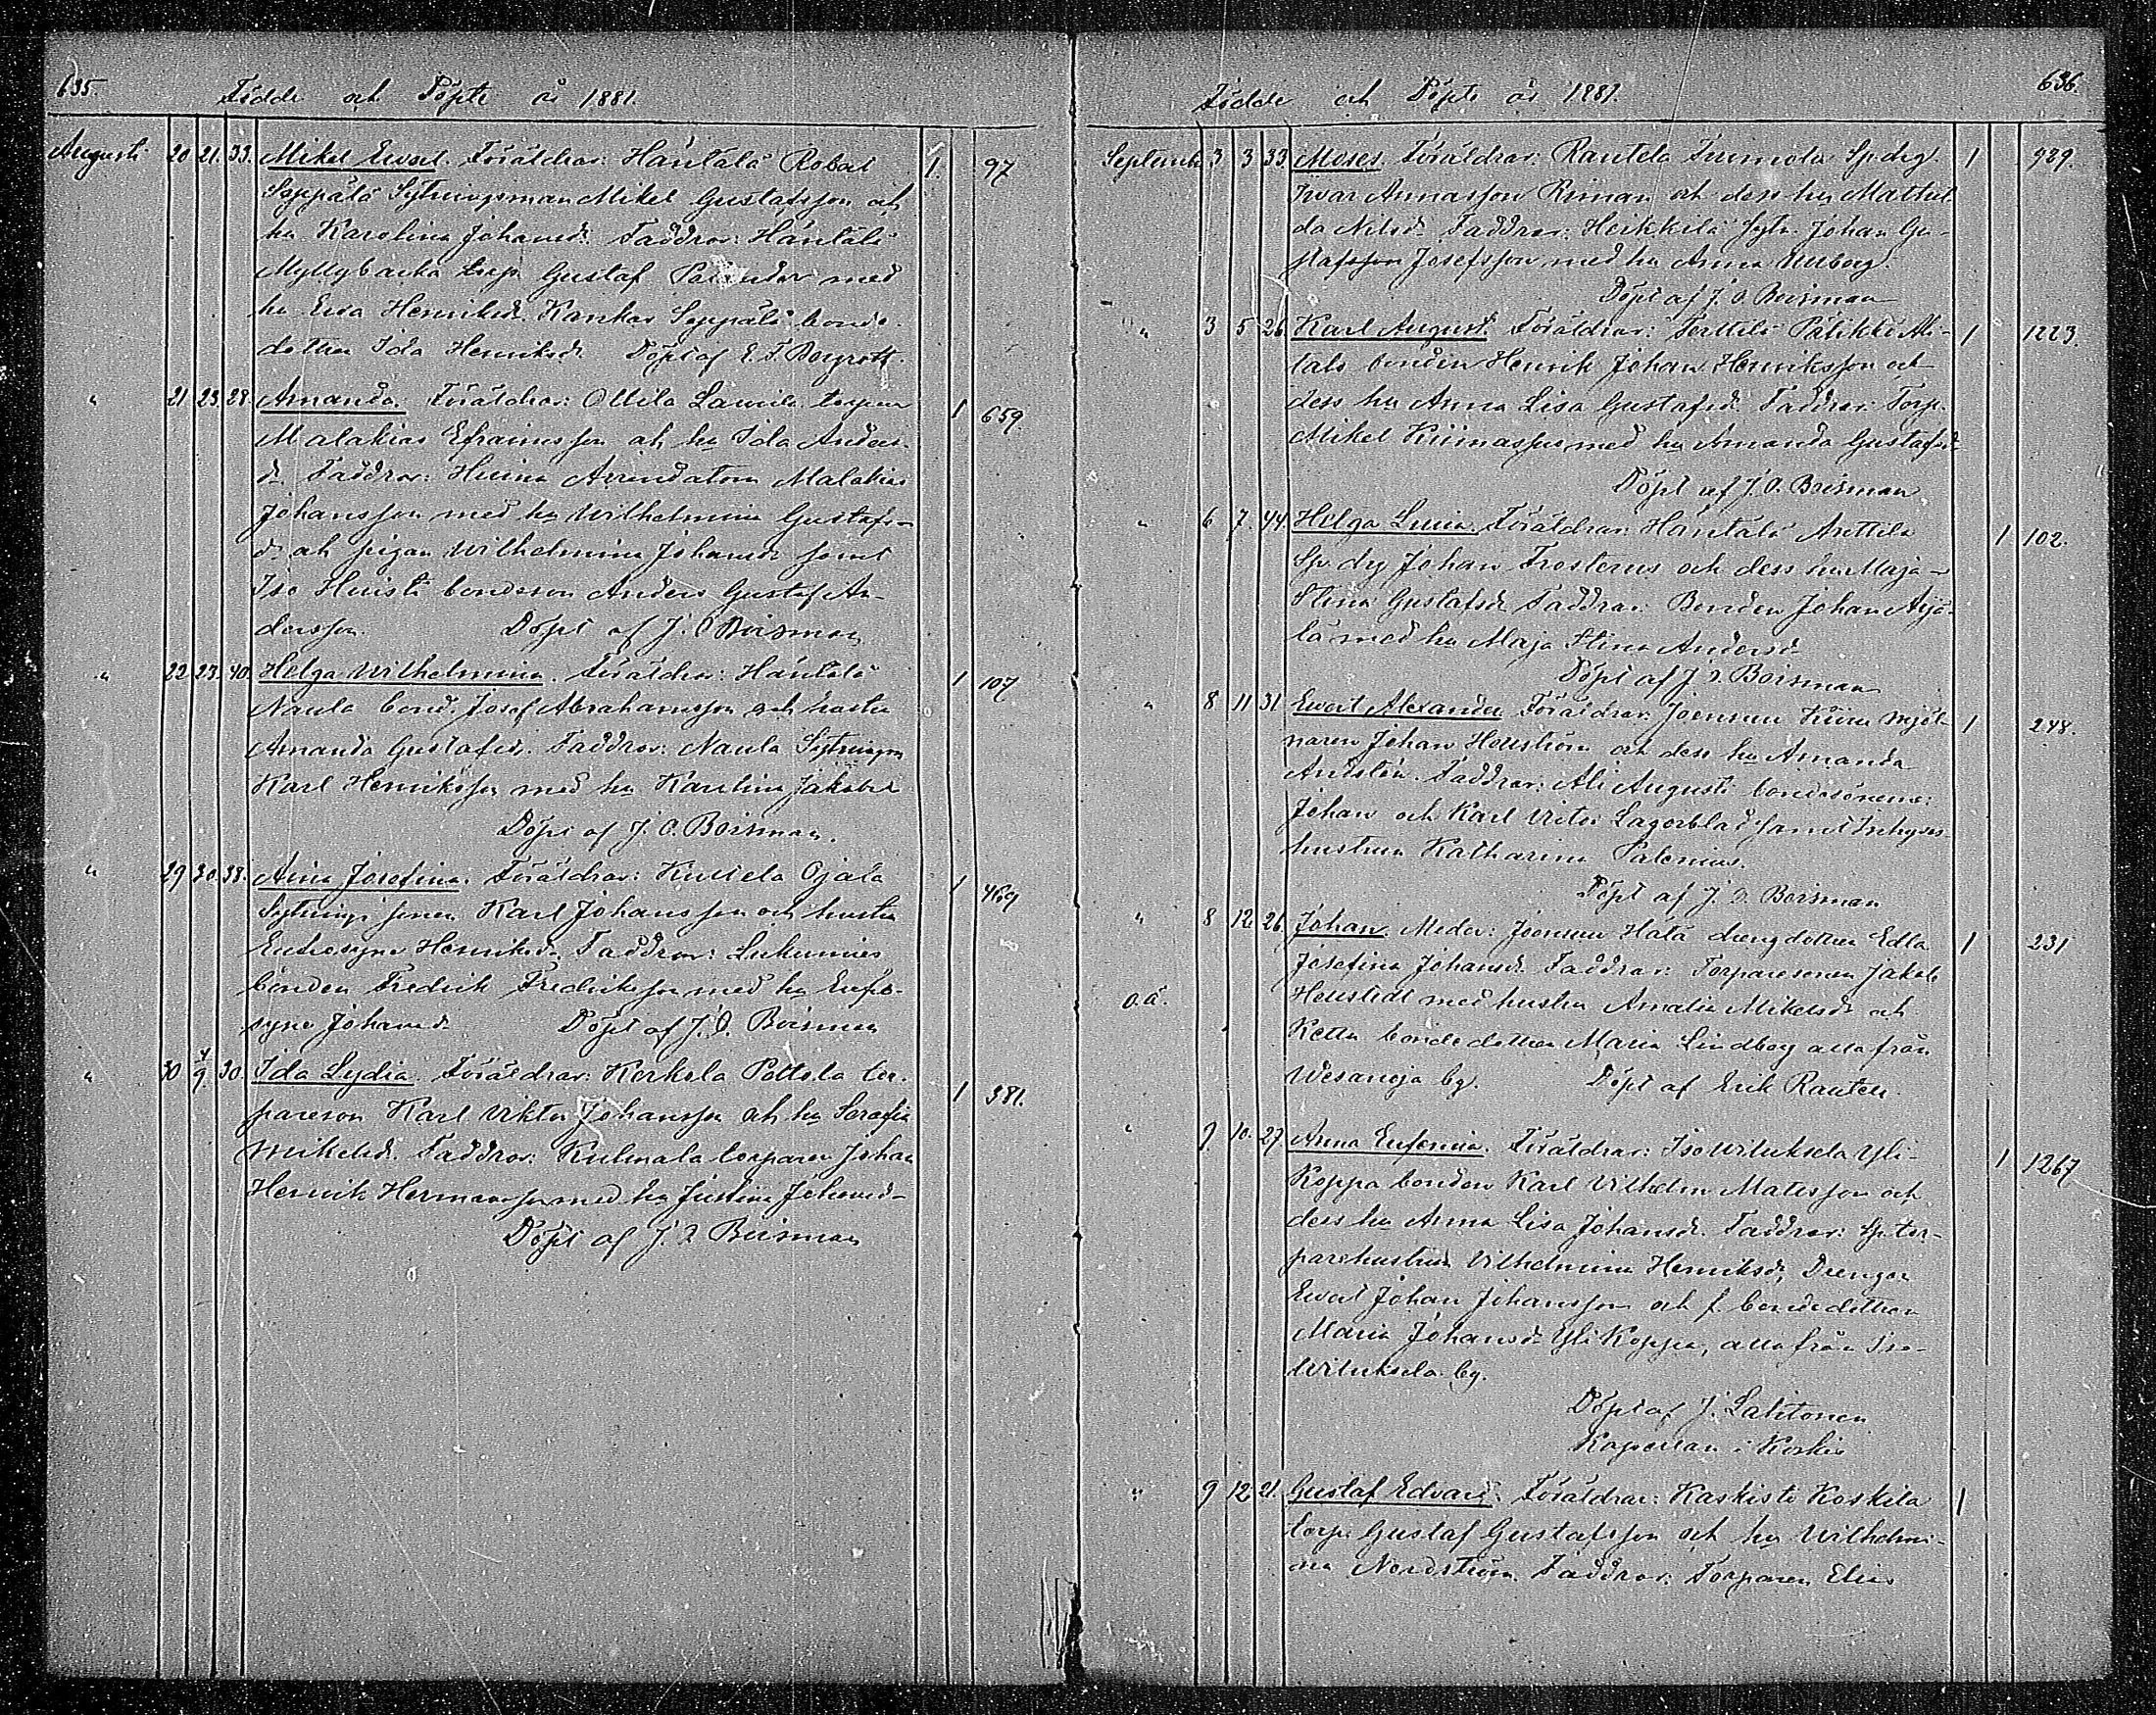 635.
Födde och Döpte år 1881.
Augusti 20 21. 33. Mikel Evert. Föräldrar: Häntälä Robal 1. 97
Seppälä Sytningsman Mikel Gustafsson och
hu Karolina Johansd. Faddrar: Häntälä
Myllybacka torp. Gustaf med
hu Eva Henriksd. Karskas Seppälä bonde
dottren Ida Henriksd. Döpt af E. F. Bergroth.
" 21 23. 28. Amanda. Föräldrar: Ollila Laurila torpar 1 659
Malakias Efraimsson och hu Ida Anders
d. Faddrar: Huina Arrendatorn Malakias
Johansson med hu Wilhelmina Gustafs-
d. och pigan Wilhelmina Johansd. samt
Iso Huisti bondeson Anders Gustaf An-
dersson. Döpt af J. O. Boisman
" 22 23. 40. Helga Wilhelmina. Föräldrar: Häntälä 1 107
Naula bond. Josef Abrahamsson och hustru
Amanda Gustafsd. Faddrar: Naula Sytningsm
Karl Henriksson med hu Karolina Jakobsd
Döpt af J. O. Boisman.
" 29 30. 38. Aina Josefina. Föräldrar: Kuusela Ojala 1 469
Sytnings sonen Karl Johansson och hustru
Eufrosyne Henriksd. Faddrar: Liukumies
bonden Fredrik Fredriksson med hu Eufro-
syne Johansd. Döpt af J. O. Boisman
" 30 4/9 30. Ida Lydia. Föräldrar: Kerkola Pottola tor- 1 381.
pareson Karl Viktor Johansson och hu Serafia
Mikelsd. Faddrar: Kulmala torparen Johan
Henrik Hermansson med hu Justina Johansd-
Döpt af J. O. Boisman
636.
Födde och Döpte år 1881.
September 3 3 33. Moses. Föräldrar: Rautela Tuomola Sp.drg. 1 989.
Ivar Annasson Riman och dess hu Mathil
da Nilsd. Faddrar: Heikkilä Sytn. Johan Gu-
stafsson Josefsson med hu Anna Ulborg.
Döpt af J. O. Boisman
" 3 5 26. Karl August. Föräldrar: Terttilä Pälikkö Ali- 1 1223.
talo bonden Henrik Johan Henriksson och
dess hu Anna Lisa Gustafsd. Faddrar: Torp.
Mikel Kiimasson med hu Amanda Gustafsd
Döpt af J. O. Boisman
" 6 7. 44. Helga Lucia. Föräldrar: Häntälä Anttila 1 102.
Sp. drg Johan Frosterus och dess hu Maja-
Stina Gustafsd. Faddrar: Bonden Johan Äijä-
lä med hu Maja Stina Andersd
Döpt af J. O. Boisman
" 8 11 31 Evert Alexander Föräldrar: Joensuu mjöl- 1 248.
naren Johan Hellström och dess hu Amanda
Andstén. Faddrar: Ali Augusti bondesönerne:
Johan och Karl Victor Lagerblad samt Inhyses-
hustrun Katharina Palenius.
Döpt af J. O. Boisman
" 8 12 26. Johan. Moder: Joensuu Hatá drengdottren Edla 1 231
Josefina Johansd. Faddrar: Torparesonen Jakob
o.ä. Hellstedt med hustru Amalia Mikelsd. och
Kettu bondedottren Maria Lindberg alla från
Wesanoja by. Döpt af Erik Rautell.
" 9. 10. 27. Anna Eufemia. Föräldrar: Iso Wiluksela Yli- 1 1267
Koppa bonden Karl Vilhelm Matesson och
dess hu Anna Lisa Johansd. Faddrar: Sp. tor-
parehustrun Vilhelmina Henriksd, Drengar
Evert Johan Johansson och f. bondedottren
Maria Johansd. Yli Koppa, alla från Iso-
Wiluksela by.
Döpt af J. Lahtonen
Kapellan i Koskis
" 9 12. 21. Gustaf Edvard. Föräldrar: Kaskisto Koskila 1
torp. Gustaf Gustafsson och hu Wilhelmi-
na Nordström. Faddrar: Torparen Elias